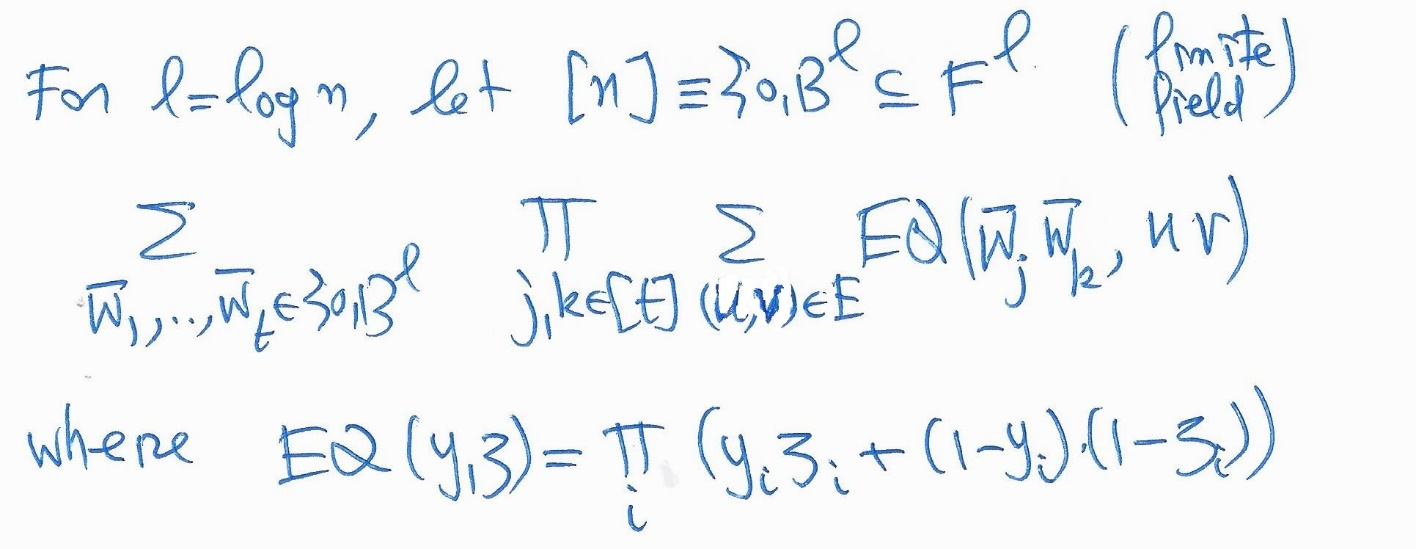 For ℓ=log n, let [n]≡{0,1}^ℓ ⊆ F^ℓ (finite field)
∑_{w̅_1,..,w̅_t∈{0,1}^ℓ} ∏_{j,k∈[t]} ∑_{(u,v)∈E} EQ(w̅_j w̅_k, uv)
where EQ(y,z)=∏_i (y_i z_i+(1-y_i)·(1-z_i))